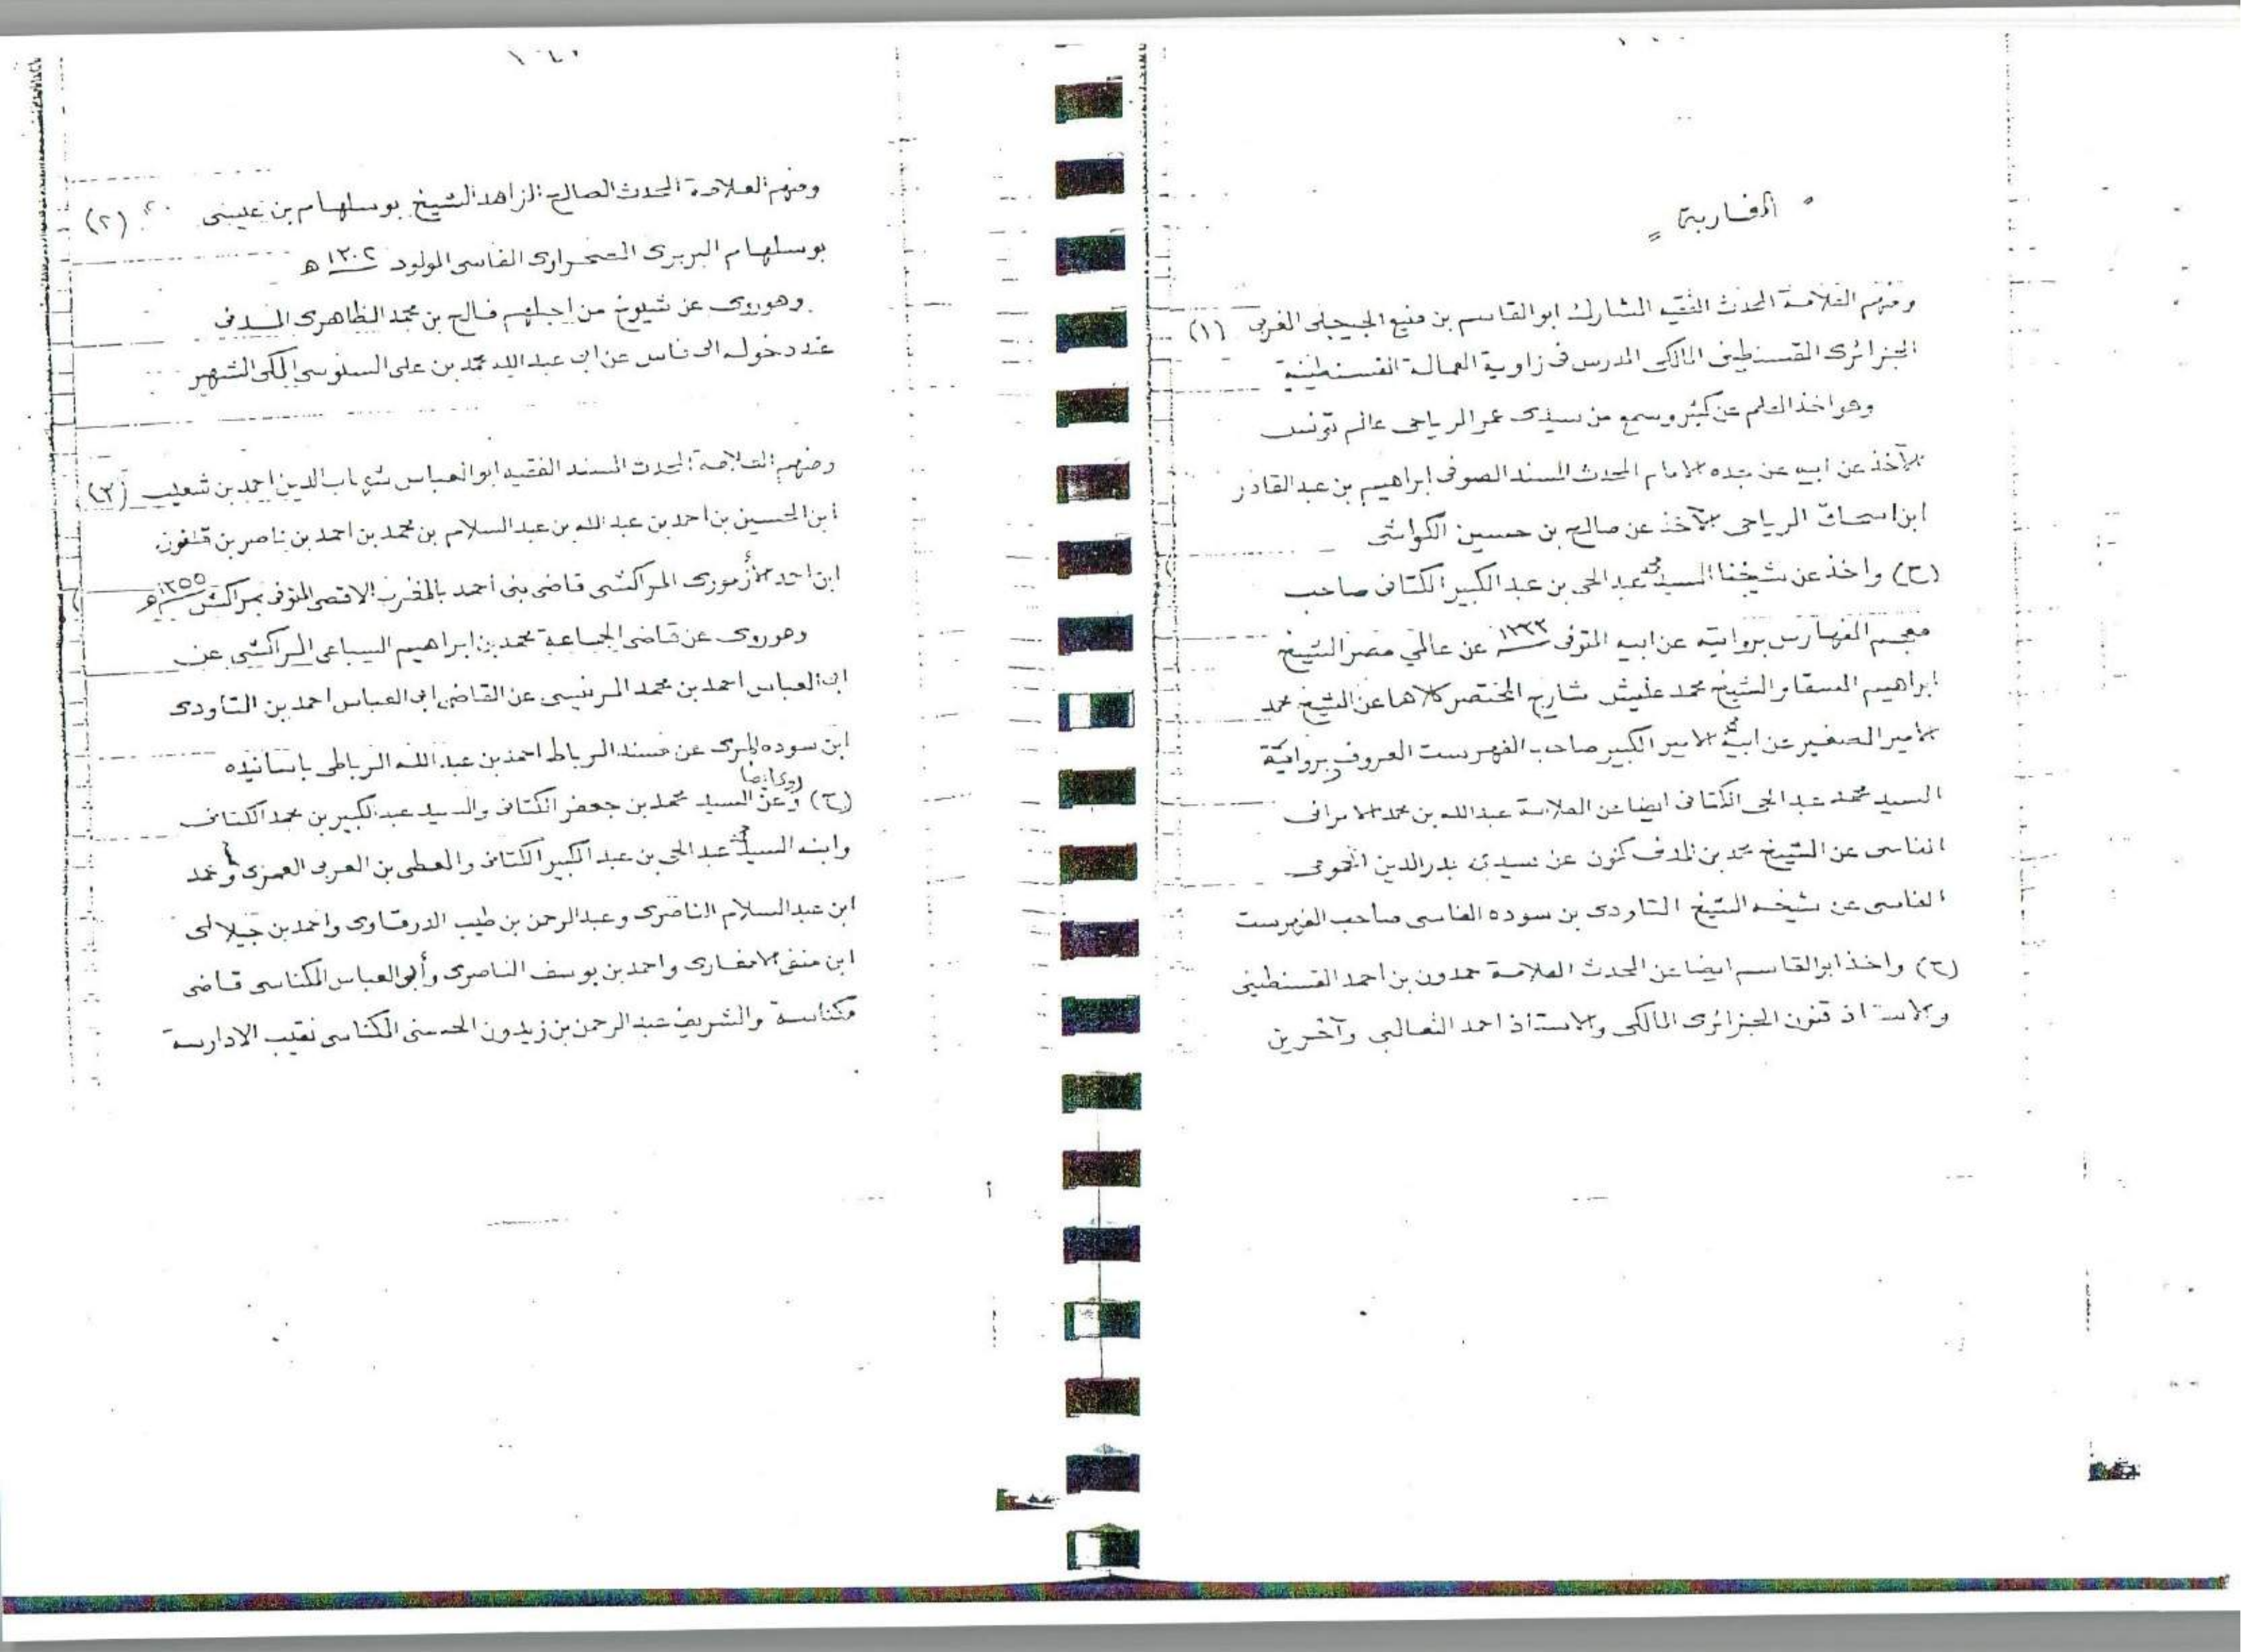 المغاربة
(١) ومنهم العلامة المحدث الفقيه المشارك ابو القاسم بن منيع الجيجلى المغربى
الجزائرى القسنطينى المالكى المدرس فى زاوية العمالة القسنطينية
وهو اخذ العلم عن كثير وسمع من سيدى عمر الرياحى عالم تونس
الآخذ عن ابيه عن جده الامام المحدث المسند الصوفى ابراهيم بن عبد القادر
ابن اسحاق الرياحى الآخذ عن صالح بن حسين الكواشى
(ح) واخذ عن شيخنا السيد محمد عبد الحى بن عبد الكبير الكتانى صاحب
معجم الفهارس بروايته عن ابيه المتوفى ١٣٣٣ عن عالمي مصر الشيخ
ابراهيم السقا والشيخ محمد عليش شارح المختصر كلاهما عن الشيخ محمد
الامير الصغير عن ابيه محمد الامير الكبير صاحب الفهرست المعروف بروايته
السيد محمد عبد الحى الكتانى ايضا عن العلامة عبد الله بن محمد الامرانى
الفاسى عن الشيخ محمد بن المدنى كنون عن سيدى بدر الدين الحموى
الفاسى عن شيخه الشيخ التاودى بن سوده الفاسى صاحب الفهرست
(ح) واخذ ابو القاسم ايضا عن المحدث العلامة حمدون بن احمد القسنطينى
والاستاذ قنون الجزائرى المالكى والاستاذ احمد الثعالبى وآخرين
(٢) ومنهم العلامة المحدث الصالح الزاهد الشيخ بوسلهام بن عيسى
بوسلهام البربرى الصحراوى الفاسى المولود ١٣٠٢ ه
وهو روى عن شيوخ من اجلهم فالح بن محمد الظاهرى المدنى
عند دخوله الى فاس عن ابى عبد الله محمد بن على السنوسى المكى الشهير
(٣) ومنهم العلامة المحدث المسند الفقيه ابو العباس شهاب الدين احمد بن شعيب
ابن الحسين بن احمد بن عبد الله بن عبد السلام بن محمد بن احمد بن ناصر بن
ابن احمد الأزمورى المراكشى قاضى بنى احمد بالمغرب الاقصى المتوفى بمراكش ١٣٥٥ه
وهو روى عن قاضى الجماعة محمد بن ابراهيم السباعى المراكشى عن
ابى العباس احمد بن محمد المرنيسى عن القاضى ابى العباس احمد بن التاودى
ابن سوده المرى عن مسند الرباط احمد بن عبد الله الرباطى باسانيده
(ح) وروى ايضا عن السيد محمد بن جعفر الكتانى والسيد عبد الكبير بن محمد الكتانى
وابنه السيد محمد عبد الحى بن عبد الكبير الكتانى والمعطى بن العربى العمزى ومحمد
ابن عبد السلام الناصرى وعبد الرحمن بن طيب الدرقاوى واحمد بن جيلالى
ابن الامغارى واحمد بن يوسف الناصرى وأبى العباس المكناسى قاضى
مكناسة والشريف عبد الرحمن بن زيدون الحسنى المكناسى نقيب الادارسة